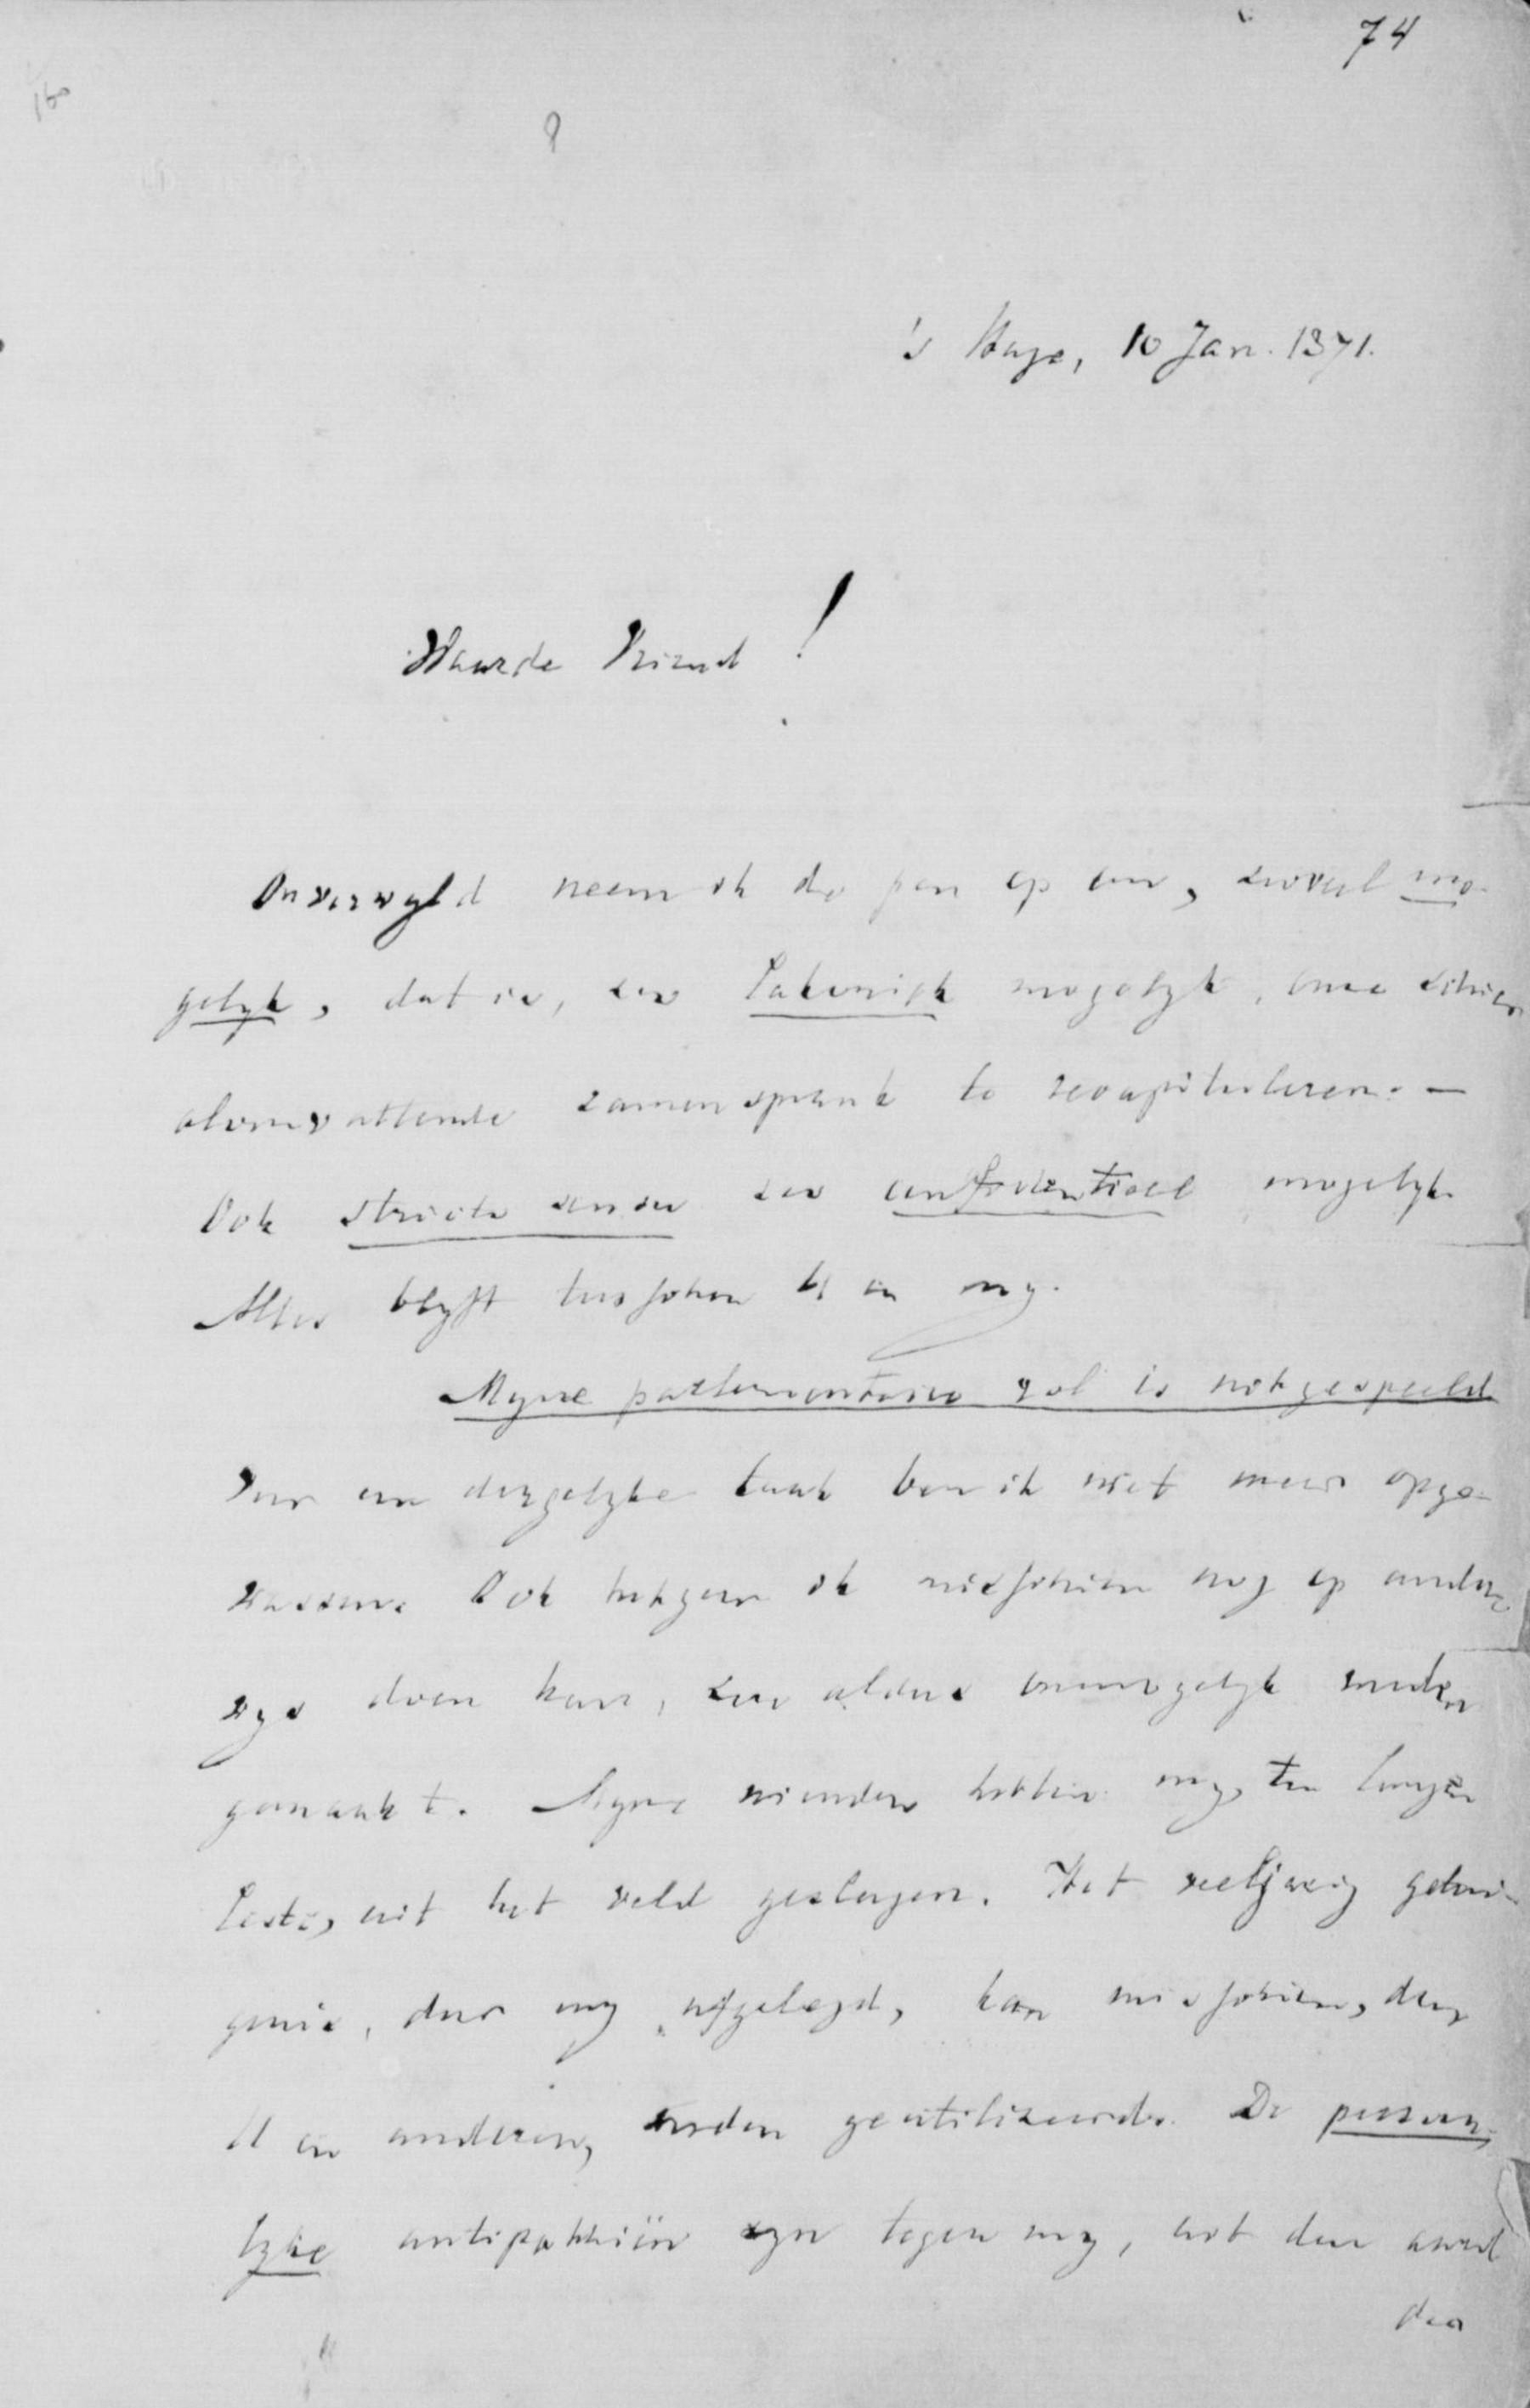 74
160
's Hage, 10 Jan. 1871.
Waarde Vriend!
Onverwyld neem ik de pen op om, zooveel mo-
gelyk, dat is, zoo Lakonisk mogelyk, onze
alomvattende zamenspraak te recapituleren. —
Ook stricto sensu zoo confidentieel mogelyk
Alles blyft tusschen U en my.
Myne parlementaire rol is uitgespeeld
Voor een dergelyke taak ben ik niet meer opge-
wassen. Ook hetgeen ik misschien nog op andere
wys doen kan, zou aldus onmogelyk worden
gemaakt. Myne vrienden hebben my, ten langen
Leste, uit het veld geslagen. Het veeljarig getui-
genis, door my afgelegd, kan misschien, door
U en anderen, worden geutiliseerd. De persoon-
lyke antipathiën zyn tegen my, uit den aard
der